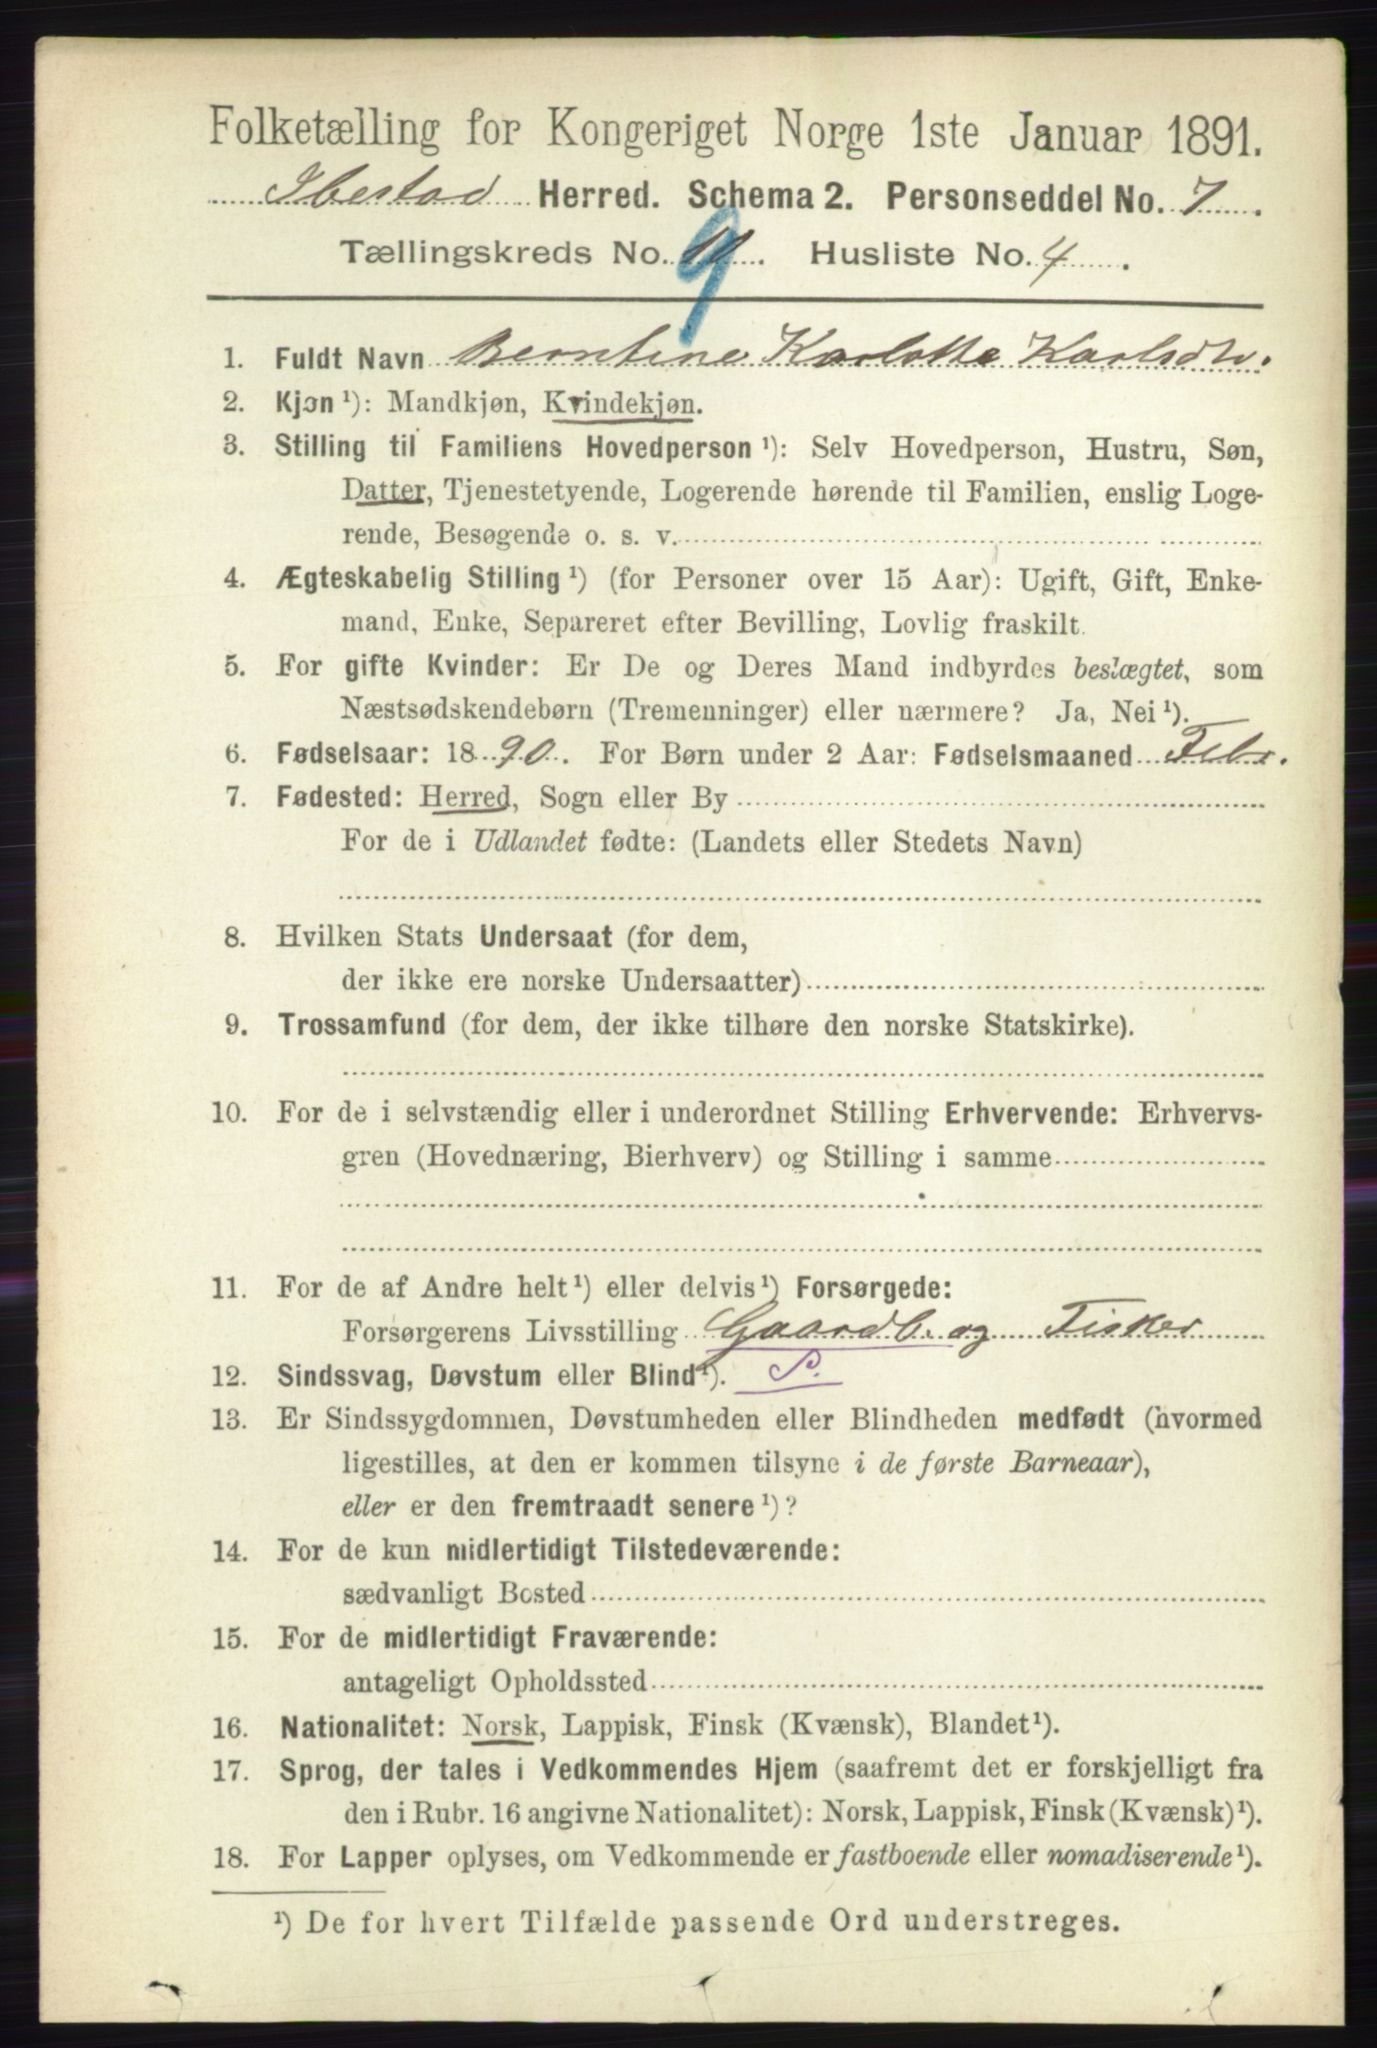 Folketælling for Kongeriget Norge 1ste Januar 1891.
Ibestad Herred. Schema 2. Personseddel No. 7.
Tællingskreds No. 9. Husliste No. 4.
1. Fuldt Navn Berntine Karlotte Karlsdtr.
2. Kjøn ¹): Mandkjøn, Kvindekjøn.
3. Stilling til Familiens Hovedperson ¹): Selv Hovedperson, Hustru, Søn,
Datter, Tjenestetyende, Logerende hørende til Familien, enslig Loge-
rende, Besøgende o. s. v.
4. Ægteskabelig Stilling ¹) (for Personer over 15 Aar): Ugift, Gift, Enke-
mand, Enke, Separeret efter Bevilling, Lovlig fraskilt.
5. For gifte Kvinder: Er De og Deres Mand indbyrdes beslægtet, som
Næstsødskendebørn (Tremenninger) eller nærmere? Ja, Nei ¹).
6. Fødselsaar: 1890. For Børn under 2 Aar: Fødselsmaaned Febr.
7. Fødested: Herred, Sogn eller By
For de i Udlandet fødte: (Landets eller Stedets Navn)
8. Hvilken Stats Undersaat (for dem,
der ikke ere norske Undersaatter)
9. Trossamfund (for dem, der ikke tilhøre den norske Statskirke).
10. For de i selvstændig eller i underordnet Stilling Erhvervende: Erhvervs-
gren (Hovednæring, Bierhverv) og Stilling i samme
11. For de af Andre helt ¹) eller delvis ¹) Forsørgede:
Forsørgerens Livsstilling Gaardb. og Fisker
12. Sindssvag, Døvstum eller Blind ¹). S.
13. Er Sindssygdommen, Døvstumheden eller Blindheden medfødt (hvormed
ligestilles, at den er kommen tilsyne i de første Barneaar),
eller er den fremtraadt senere ¹)?
14. For de kun midlertidigt Tilstedeværende:
sædvanligt Bosted
15. For de midlertidigt Fraværende:
antageligt Opholdssted
16. Nationalitet: Norsk, Lappisk, Finsk (Kvænsk), Blandet ¹).
17. Sprog, der tales i Vedkommendes Hjem (saafremt det er forskjelligt fra
den i Rubr. 16 angivne Nationalitet): Norsk, Lappisk, Finsk (Kvænsk) ¹).
18. For Lapper oplyses, om Vedkommende er fastboende eller nomadiserende ¹).
¹) De for hvert Tilfælde passende Ord understreges.